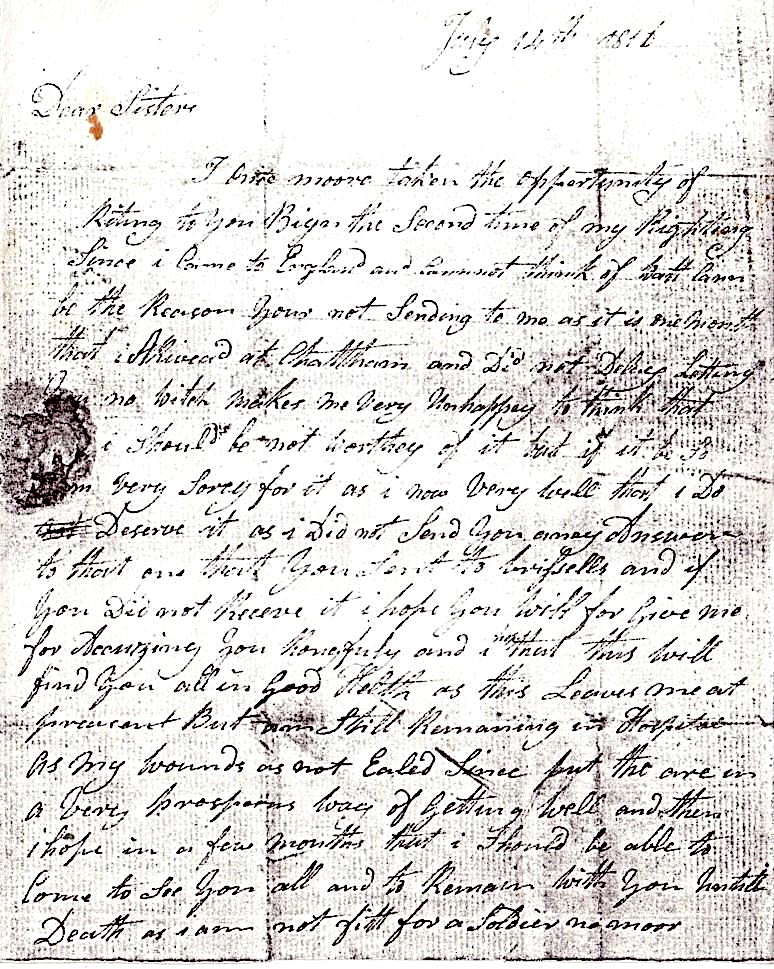 July 14th 1816
Dear Sister
I once moore taken the opportunity of
Riting to you the Second time of my Righting
Since i Came to England and Cannot think of Catt Cann
be the Reason Your not Sending to me as it is one Month
that i ARivead at Chattham and Did not Deley Letting
You no witch makes me very Unhappey to think that
i Should be not worthey of it but if it be So
very Sorey for it as i now very well that i Do
Deserve it as i Did not Send you aney Answer
to that one that You Sent to brissells and if
You Did not Receve it i hope You will for Give me
for Accuzing you Rongfuly and i hope that this will
find You all in Good Helth as this Leaves me at
preasent But am Still Remaning in Hospital
as my wounds as not Ealed Since put the are in
a very prosperus way of Getting well and then
i hope in a few Months that i Should be able to
Come to See You all and to Remain with You Untill
Death as i am not fitt for a Soldier no moor